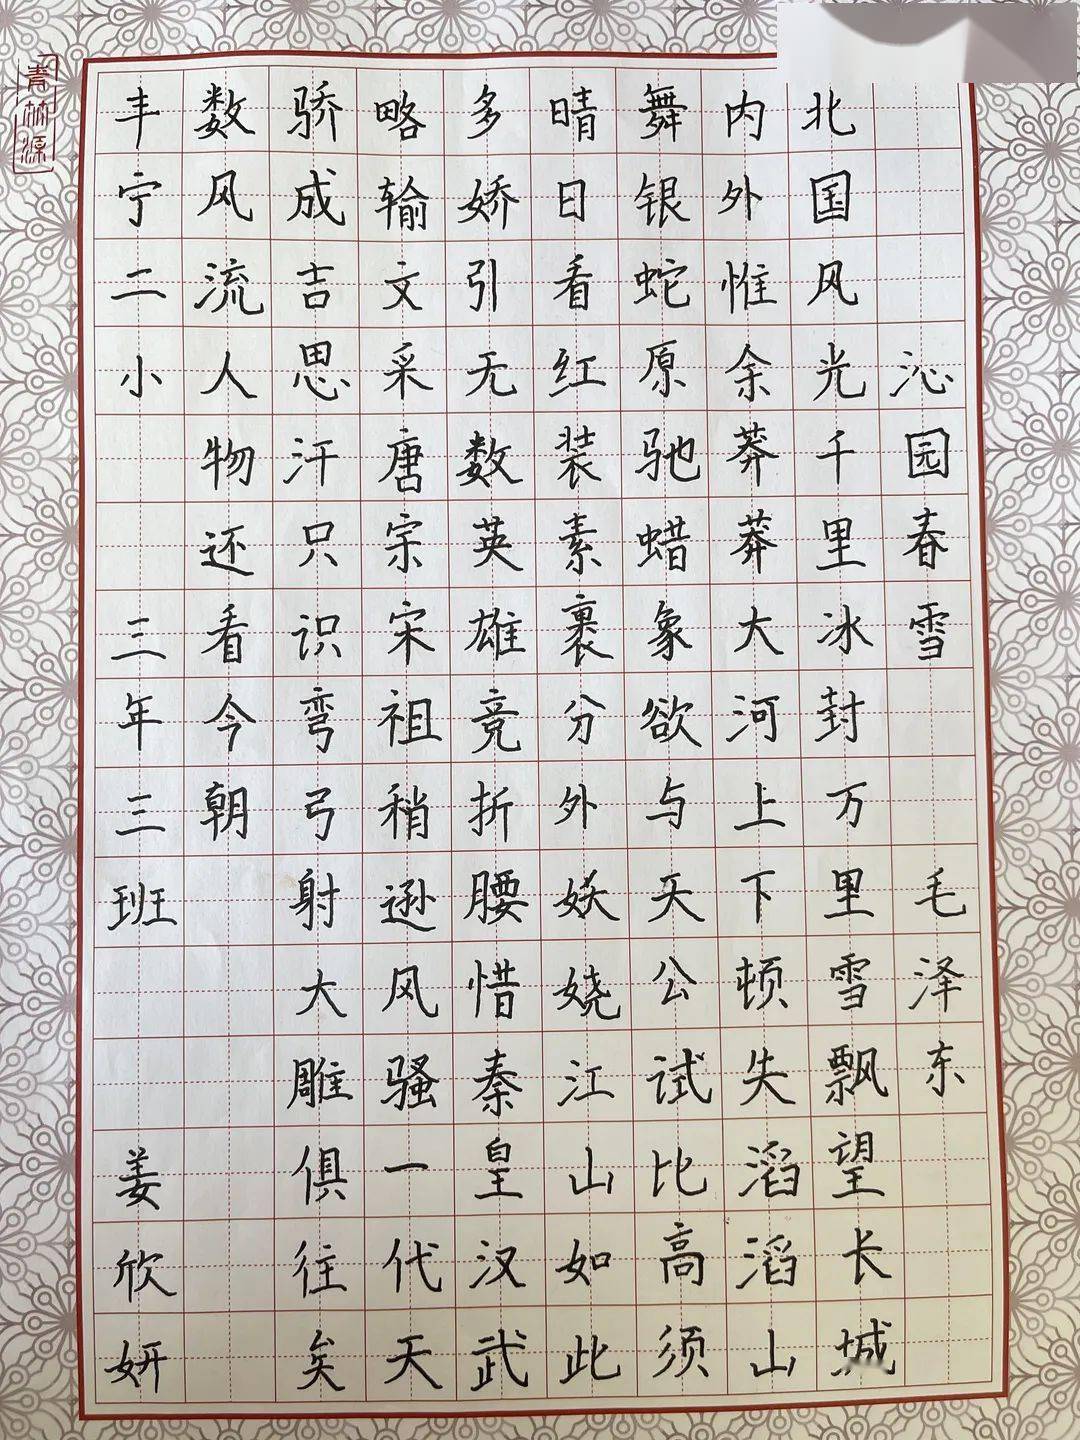 沁园春 雪 毛泽东
北国风光千里冰封万里雪飘望长城
内外惟余莽莽大河上下顿失滔滔山
舞银蛇原驰蜡象欲与天公试比高须
晴日看红装素裹分外妖娆江山如此
多娇引无数英雄竞折腰惜秦皇汉武
略输文采唐宗宋祖稍逊风骚一代天
骄成吉思汗只识弯弓射大雕俱往矣
数风流人物还看今朝
丰宁二小 三年三班 姜欣妍